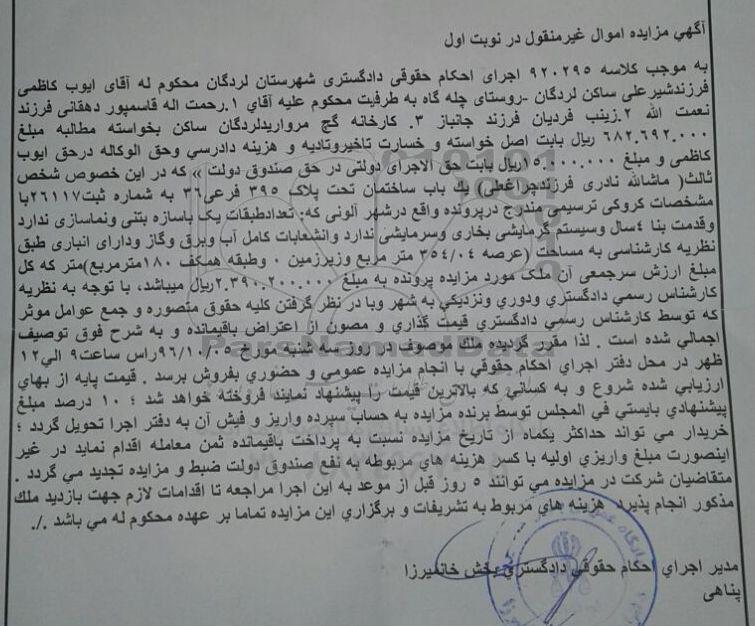 آگهي مزايده اموال غيرمنقول در نوبت اول
به موجب كلاسه ۹۲۰۲۹۵ اجرای احكام حقوقی دادگستری شهرستان لردگان محكوم له آقای ايوب كاظمی
فرزندشيرعلی ساكن لردگان -روستای چله گاه به طرفيت محكوم عليه آقاي ۱.رحمت اله قاسمپور دهقانی فرزند
نعمت الله ۲.زينب فرديان فرزند جانباز ۳. كارخانه گچ مرواريدلردگان ساكن بخواسته مطالبه مبلغ
۶۸۲.۶۹۲.۰۰۰ ريال بابت اصل خواسته و خسارت تاخيروتاديه و هزينه دادرسي وحق الوكاله درحق ايوب
كاظمی و مبلغ ۱۵.۰۰۰.۰۰۰ريال بابت حق الاجرای دولتی در حق صندوق دولت » كه در اين خصوص شخص
ثالث( ماشالله نادری فرزندچراغعلی) يك باب ساختمان تحت پلاک ۳۹۵ فرعی۳۶ به شماره ثبت۲۶۱۱۷با
مشخصات كروكی ترسيمی مندرج درپرونده واقع درشهر آلونی كه: تعدادطبقات يک باسازه بتنی ونماسازی ندارد
وقدمت بنا ۴سال وسيستم گرمايشی بخاری وسرمايشی ندارد وانشعابات كامل آب وبرق وگاز ودارای انباری طبق
نظريه كارشناسی به مساحت (عرصه ۳۵۴/۰۴ متر مربع وزيرزمين ۰ وطبقه همكف ۱۸۰مترمربع)متر كه كل
مبلغ ارزش سرجمعی آن ملک مورد مزايده پرونده به مبلغ ۲.۳۹۰.۲۰۰.۰۰۰ريال ميباشد، با توجه به نظريه
كارشناس رسمي دادگستري ودوري ونزديكي به شهر وبا در نظر گرفتن كليه حقوق متصوره و جمع عوامل موثر
كه توسط كارشناس رسمي دادگستري قيمت گذاري و مصون از اعتراض باقيمانده و به شرح فوق توصيف
اجمالي شده است . لذا مقرر گرديده ملك موصوف در روز سه شنبه مورخ ۹۶/۱۰/۰۵راس ساعت۹ الي۱۲
ظهر در محل دفتر اجراي احكام حقوقي با انجام مزايده عمومي و حضوري بفروش برسد . قيمت پايه از بهاي
ارزيابي شده شروع و به كساني كه بالاترين قيمت را پيشنهاد نمايند فروخته خواهد شد ؛ ۱۰ درصد مبلغ
پيشنهادي بايستي في المجلس توسط برنده مزايده به حساب سپرده واريز و فيش آن به دفتر اجرا تحويل گردد ؛
خريدار مي تواند حداكثر يكماه از تاريخ مزايده نسبت به پرداخت باقيمانده ثمن معامله اقدام نمايد در غير
اينصورت مبلغ واريزي اوليه با كسر هزينه هاي مربوطه به نفع صندوق دولت ضبط و مزايده تجديد مي گردد .
متقاضيان شركت در مزايده مي توانند ۵ روز قبل از موعد به اين اجرا مراجعه تا اقدامات لازم جهت بازديد ملك
مذكور انجام پذيرد هزينه هاي مربوط به تشريفات و برگزاري اين مزايده تماما بر عهده محكوم له مي باشد ./.
مدير اجراي احكام حقوقي دادگستري بخش خانميرزا
پناهی
ParsNamadData